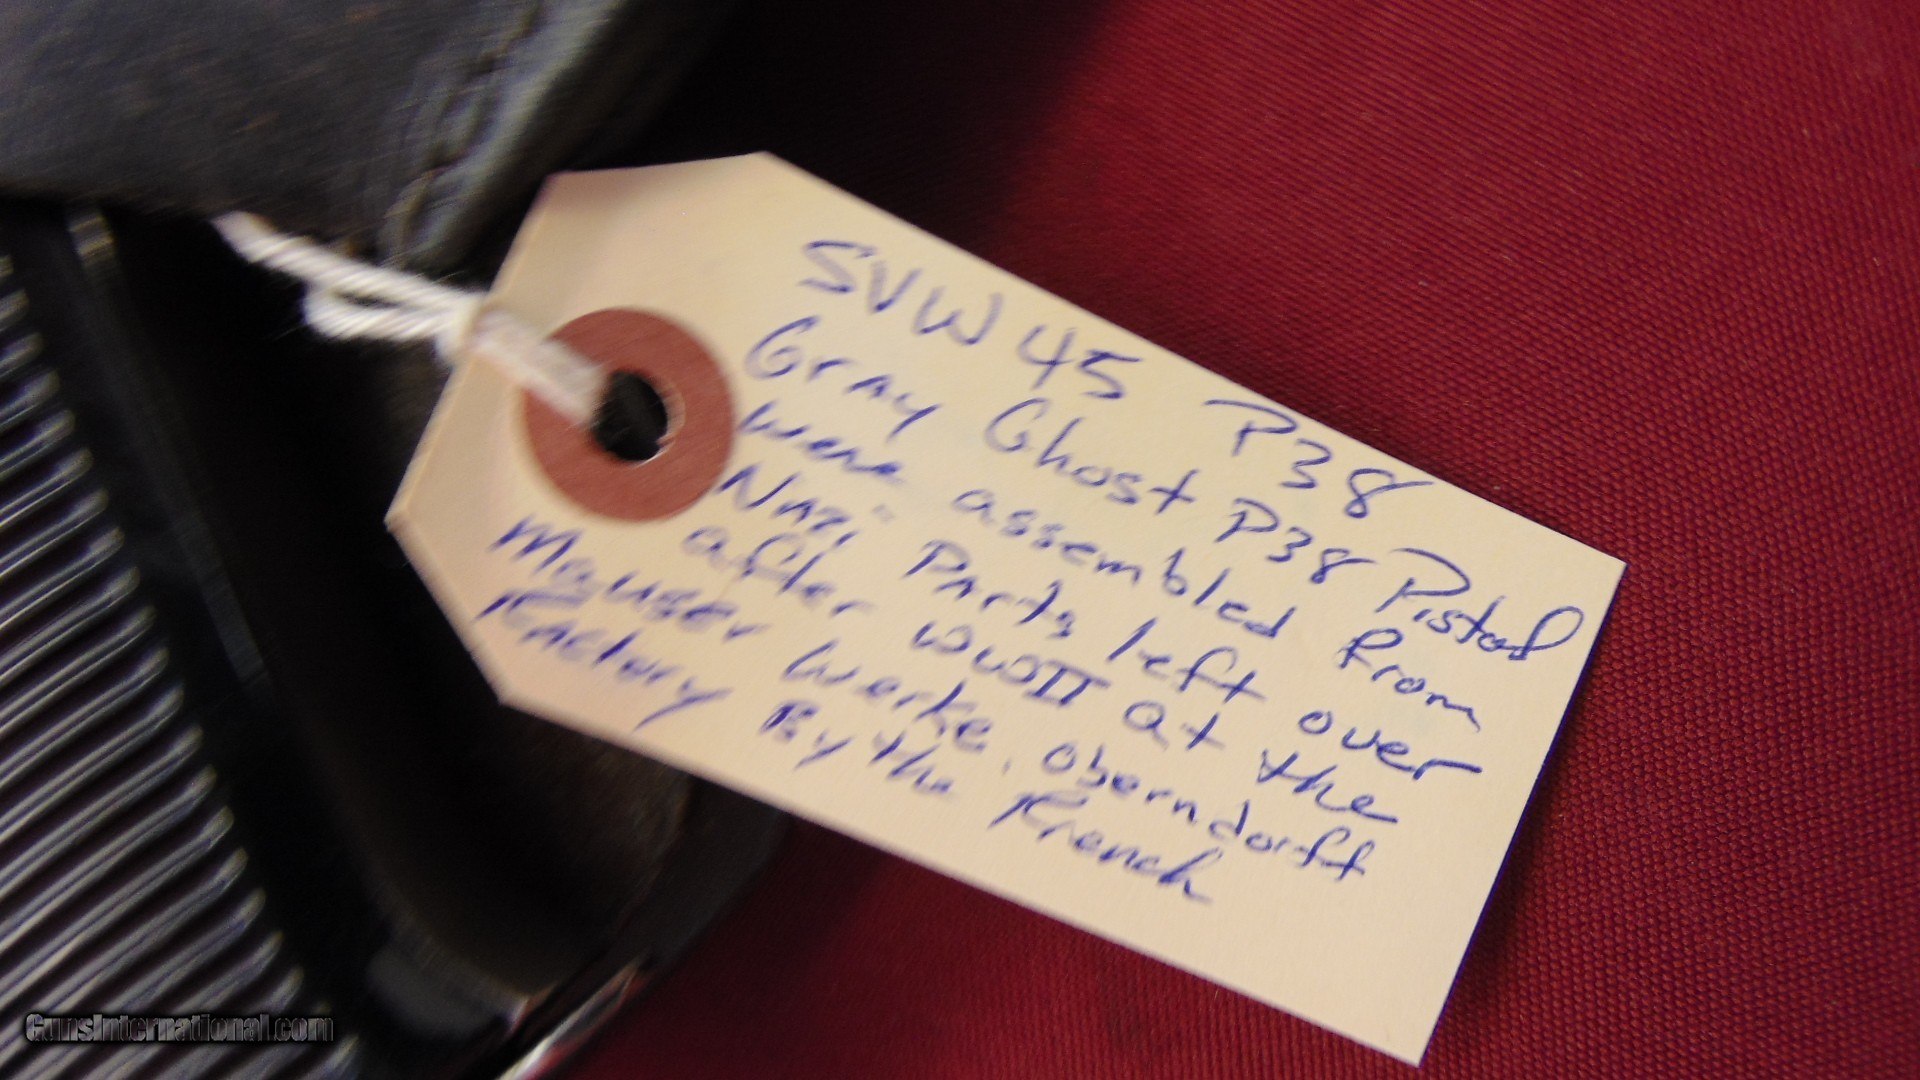 SVW 45 P38
Gray Ghost P38 Pistol
were assembled from
Nazi Parts left over
after WWII at the
Mauser Werke, Oberndorff
Factory By the French
GunsInternational.com